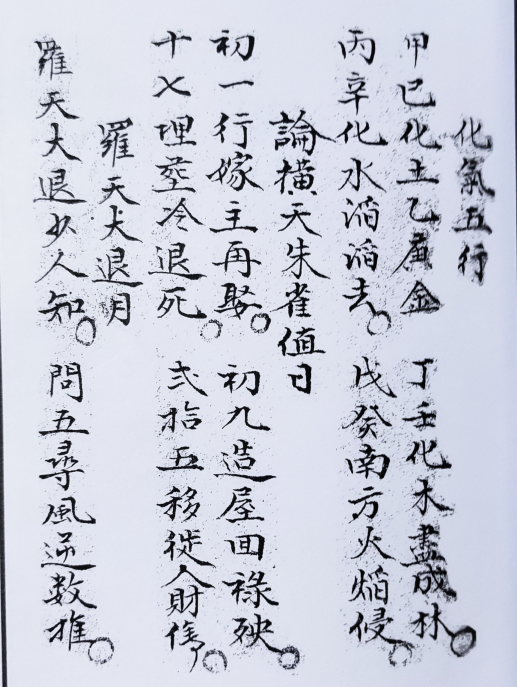 化氣五行
甲巳化土乙庚金 丁壬化木盡成林
丙辛化水滔滔去 戊癸南方火焰侵
論橫天朱雀値日
初一行嫁主再娶 初九造屋囬祿殃
十七埋葬冷退死 弍拾五移徙人財傷
羅天大退月
羅天大退少人知 問五尋風逆數推